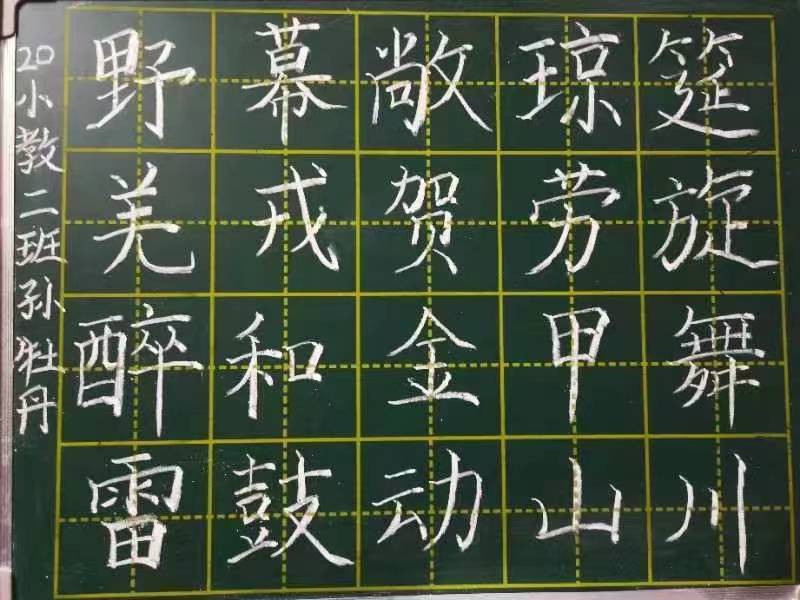 20小教二班孙牡丹
野幕敞琼筵
羌戎贺劳旋
醉和金甲舞
雷鼓动山川